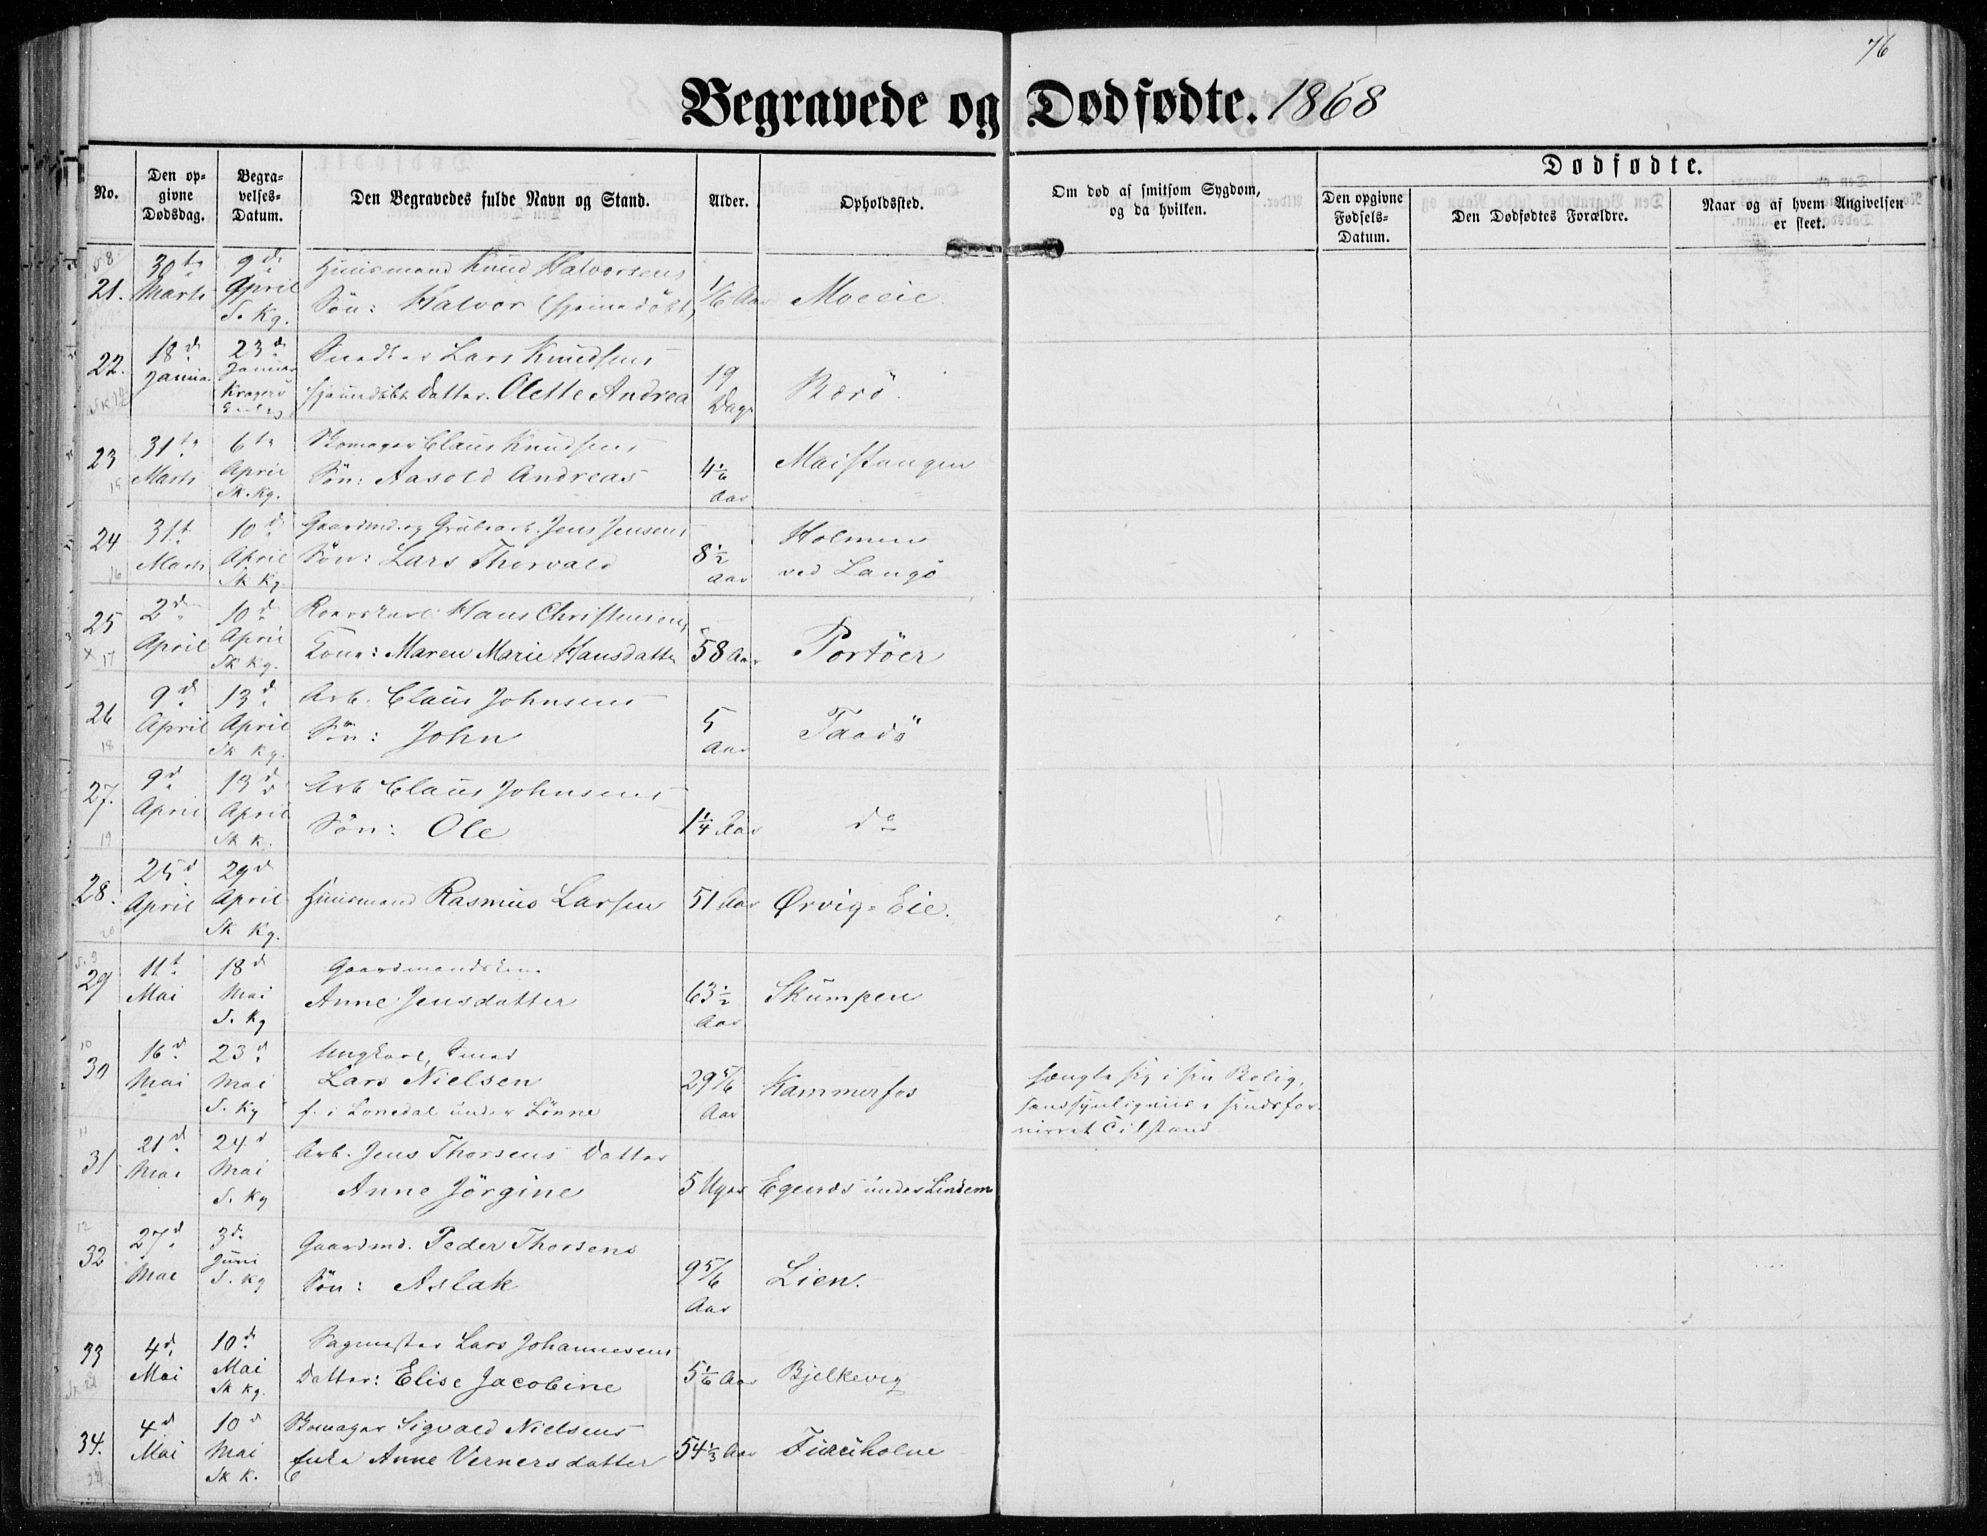 76
Begravede og Dødfødte. 1868
No.
Den opgivne Dødsdag.
Begravelses-Datum.
Den Begravedes fulde Navn og Stand.
Alder.
Opholdssted.
Om død af smitsom Sygdom, og da hvilken.
Dødfødte.
Den opgivne Fødsels-Datum.
Den Dødfødtes Forældre.
Naar og af hvem Angivelsen er skeet.
S. 8
21. 30te Marts 9de April S. Kg. Huusmand Knud Halvorsens Søn: Halvor (hjemmedøbt) 1/6 Aar Moeeie.
22. 18d Januar 23d Januar Kragerø Snedker Lars Knudsens hjemmedøbte Datter. Olette Andrea 19 Dage Berø.
23 31te Marts 6te April Sk. Kg. Skomager Claus Knudsens Søn: Aasold Andreas 4 1/6 Aar Maistangen
15
24 31t Marts 10d April Sk Kg. Gaardmd. og Grubearb. Jens Jensens Søn: Lars Thorvald 8 1/2 Aar Holmen ved Langø
16
25 2d April 10d April Sk Kg. Hans Christensens Kone: Maren Marie Hansdatter 58 Aar Portöer
x 17
26 9d April 13d April Sk Kg. Arb. Claus Johnsens Søn: John 5 Aar Taadö
18
27. 9d April 13d April Sk K. Arb Claus Johnsens Søn: Ole 1 1/4 Aar do
19
28. 25d April 29d April Sk Kg. Huusmand Rasmus Larsen 51 Aar Ørvig=Eie.
20
S. 9
29 11t Mai 18d Mai S. Kg Gaardmandskone Anne Jensdatter 63 1/2 Aar Skumpen
10
30 16d Mai 23d Mai S. Kg Ungkarl, Smed Lars Nielsen f. i Lonedal under Lönne 29 5/6 Aar Kammerfos hængte sig i sin Bolig, sandsynligviis i sindsforvirret Tilstand
11
31 21d Mai 24d Mai S. Kg Arb. Jens Thorsens Datter Anne Jörgine 5 Uger Egenes under Lindem
12
32 27d Mai 3d Juni S. Kg Gaardmd. Peder Thorsens Søn: Aslak 9 5/6 Aar Lien.
33 4d Mai 10d Mai Sk Kg. Sagmester Lars Johannesens Datter: Elise Jacobine 5 1/6 Aar Bjelkevig
34. 4d Mai 10d Mai Sk K. Skomager Sigvald Nielsens Enke Anne Vernersdatter 54 1/3 Aar Furuholm